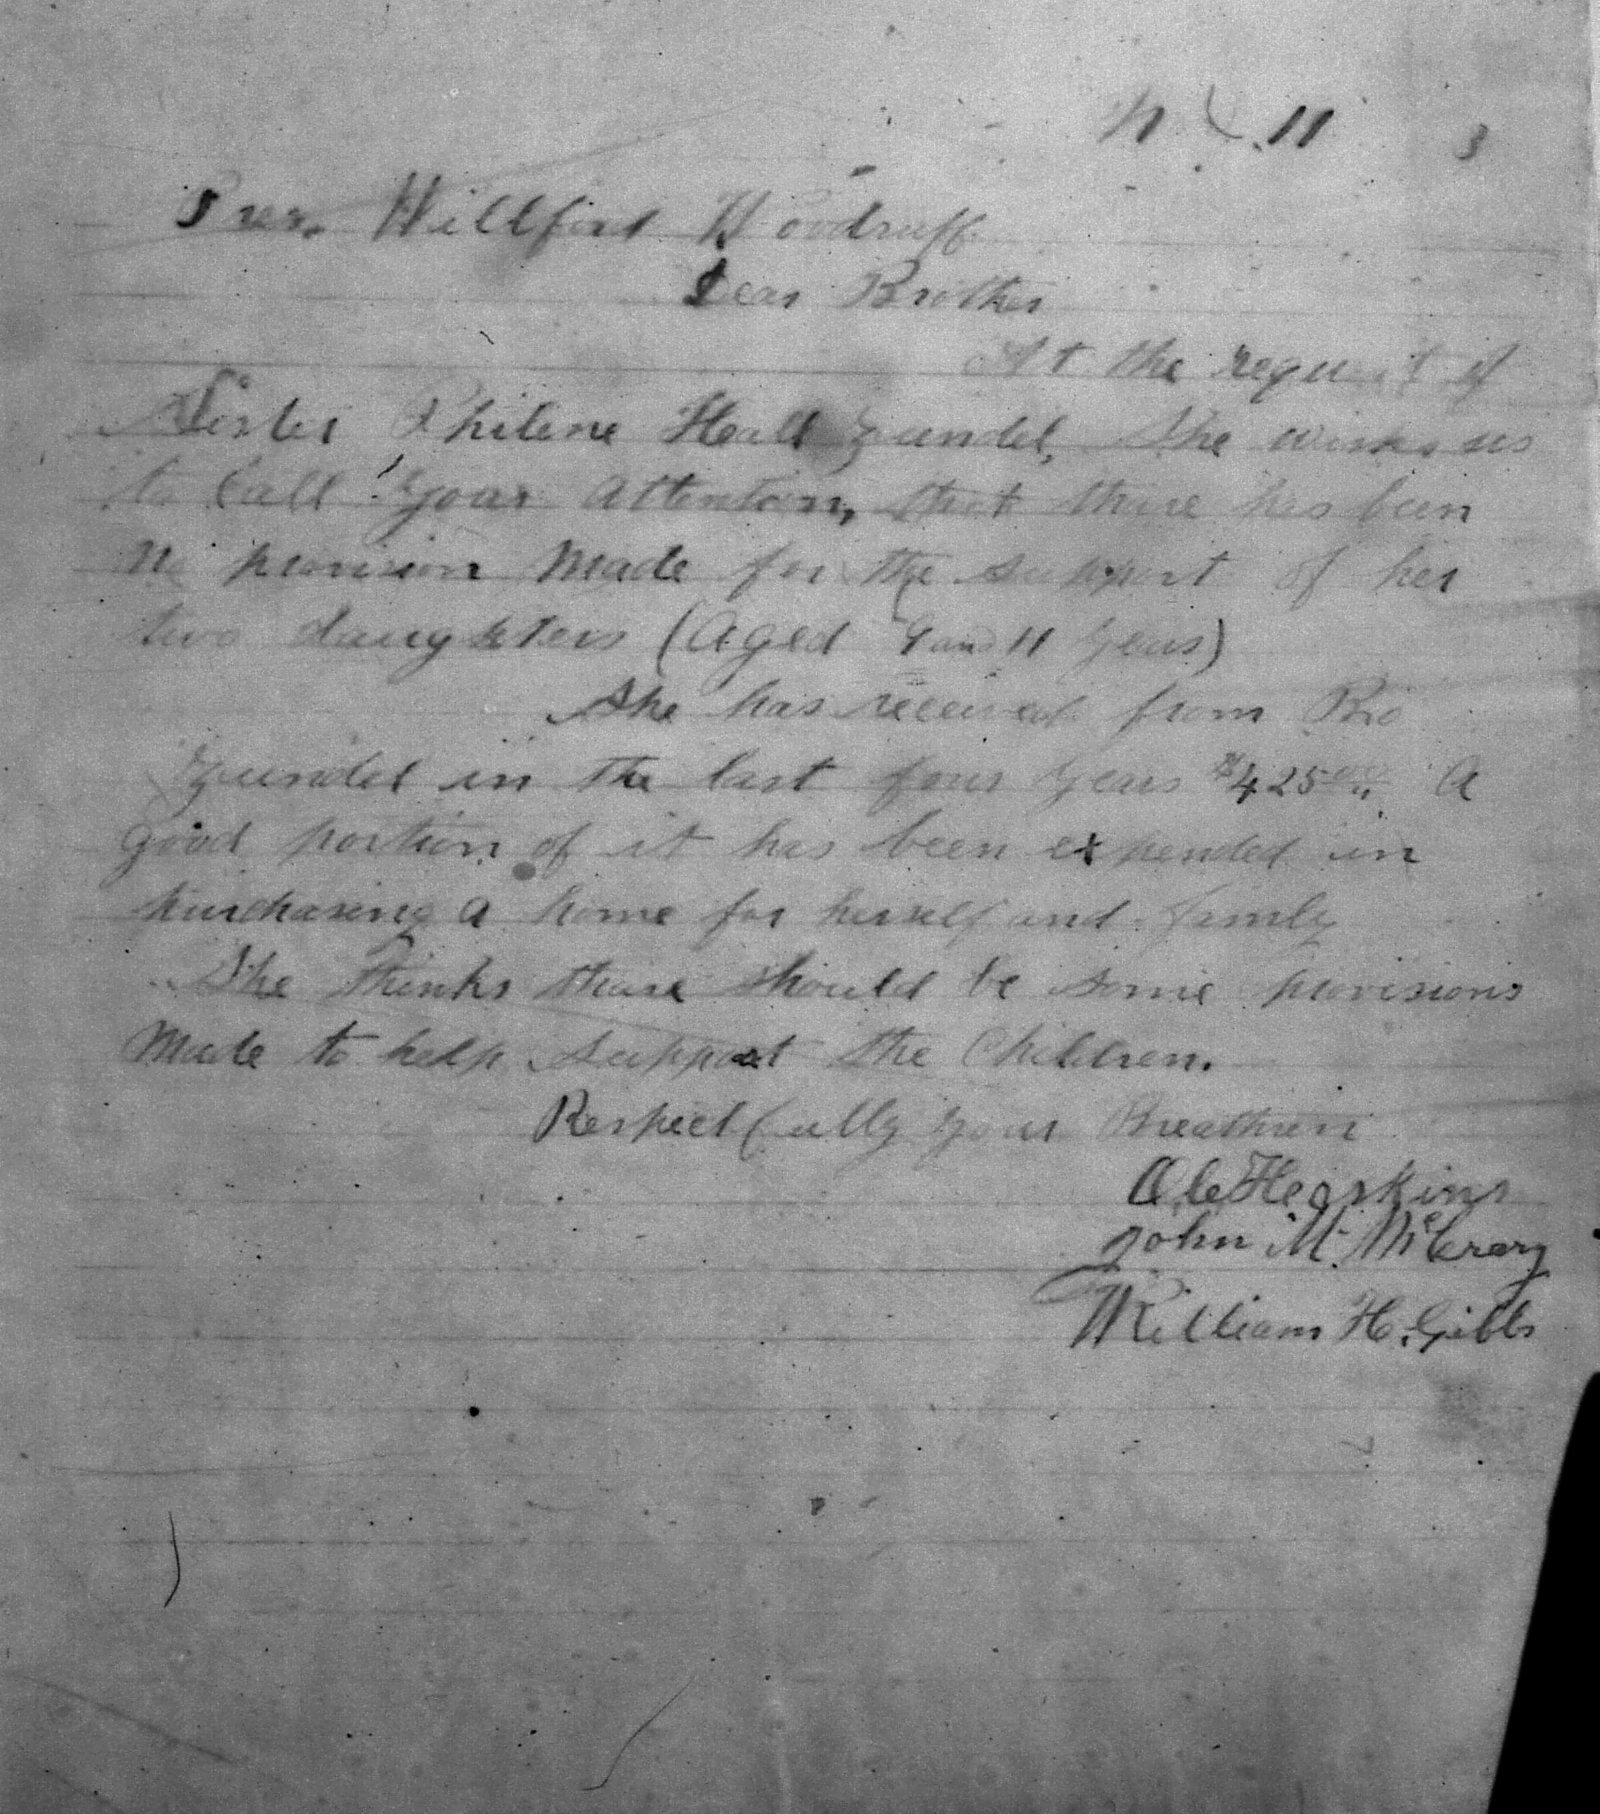 Pres. Willford Woodruff
Dear Brother
At the request of
Sister Philene Hall Zundel, She wishes us
to Call Your Attention, that thare has been
no provision Made for the support of her
two daughters (Aged 9 and 11 Years)
She has received from Bro
Zundel in the last four Years $425.00. A
good portion of it has been expended in
purchasing a home for herself and family
She thinks thare should be some provisions
Made to help support the Children.
Respectfully Your Breathren
John M. McCrary
William H. Gibbs